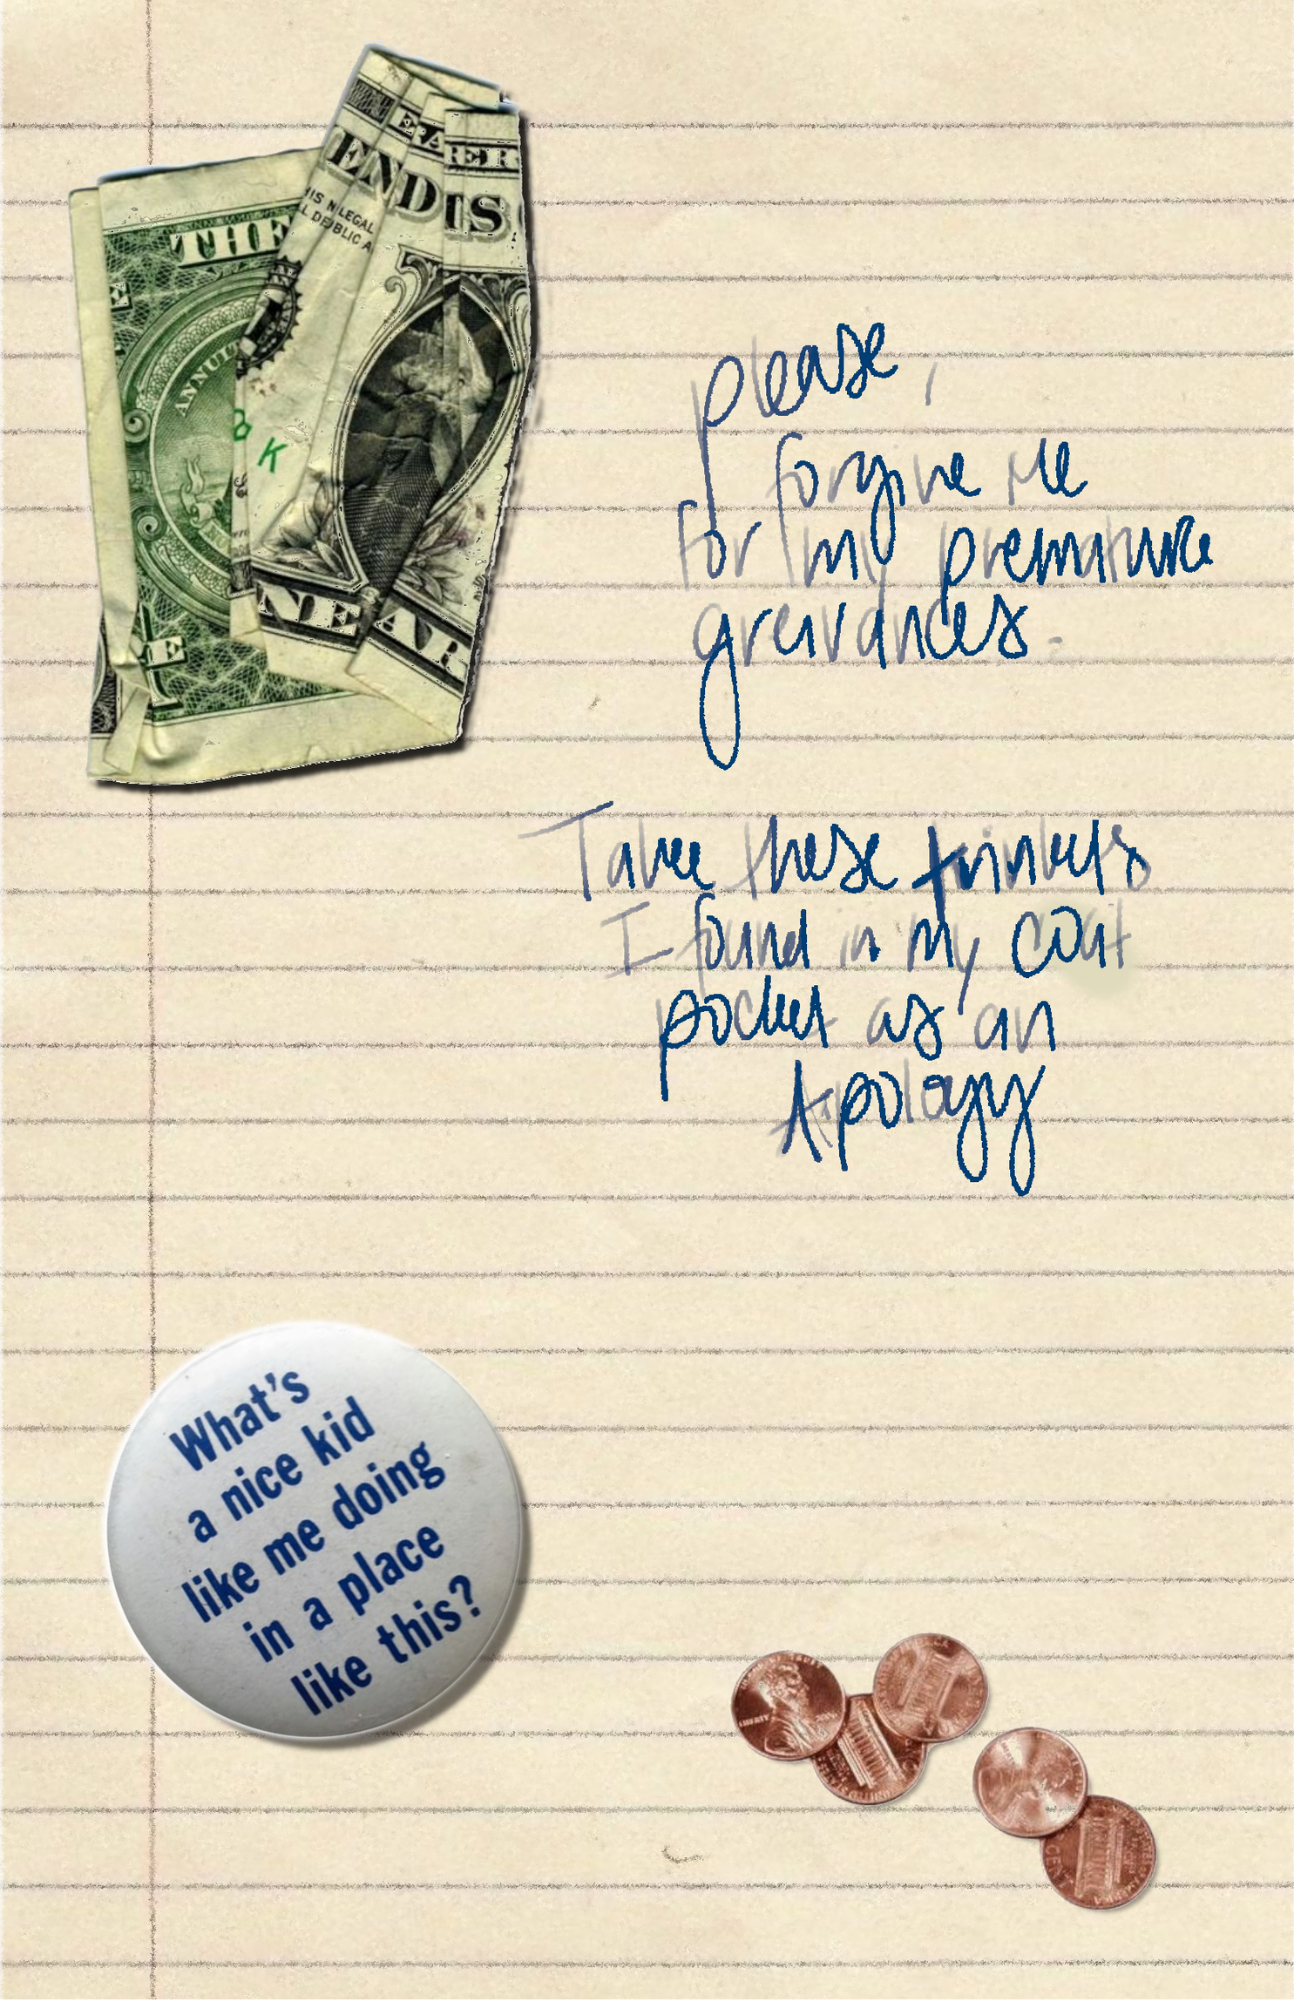 THE
ANNU
E
END IS
NE AR
IS N LEGAL
L DE BLIC A
K
please,
forgive me
for my premature
greivances.
Take these trinkets
I found in my coat
pocket as an
Apology
What's
a nice kid
like me doing
in a place
like this?
LIBERTY